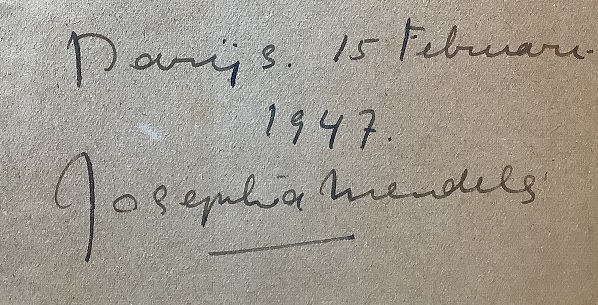 Parijs. 15 Februari.
1947.
Josepha Mendels